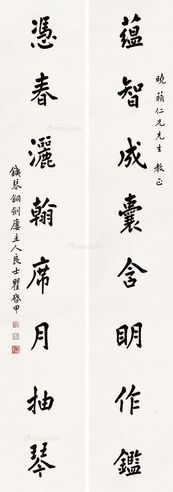 蕴智成囊含明作鑑
曉蘋仁兄先生教正
憑春灑翰席月抽琴
鐵琴銅劍廔主人良士瞿啓甲